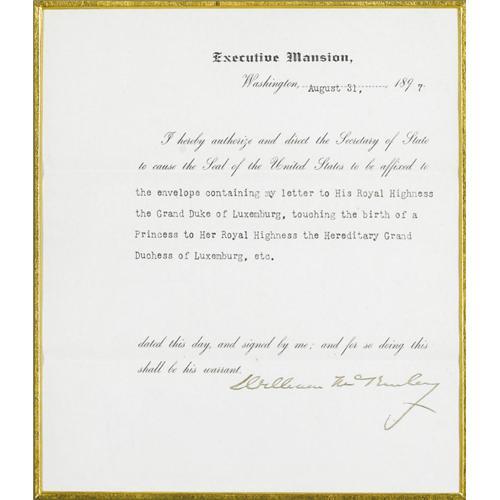 Executive Mansion,
Washington, August 31, 1897.
I hereby authorize and direct the Secretary of State
to cause the Seal of the United States to be affixed to
the envelope containing my letter to His Royal Highness
the Grand Duke of Luxemburg, touching the birth of a
Princess to Her Royal Highness the Hereditary Grand
Duchess of Luxemburg, etc.
dated this day, and signed by me; and for so doing this
shall be his warrant.
William McKinley